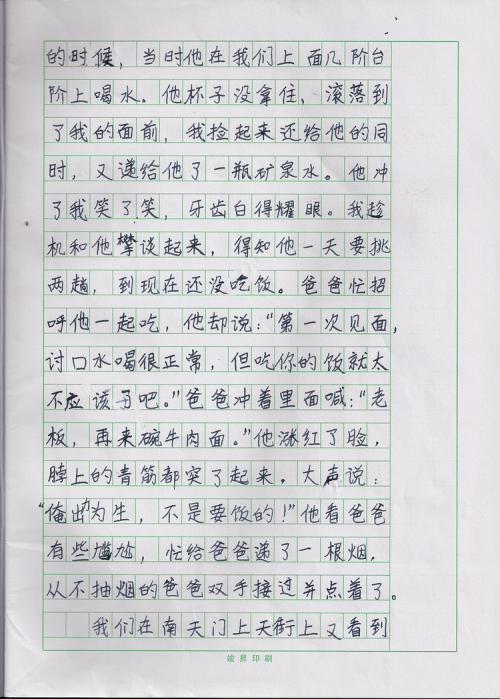 的时候，当时他在我们上面几阶台
阶上喝水。他杯子没拿住，滚落到
了我的面前，我捡起来还给他的同
时，又递给他了一瓶矿泉水。他冲
了我笑了笑，牙齿白得耀眼。我趁
机和他攀谈起来，得知他一天要挑
两趟，到现在还没吃饭。爸爸忙招
呼他一起吃，他却说："第一次见面，
讨口水喝很正常，但吃你的饭就太
不应该了吧。"爸爸冲着里面喊："老
板，再来碗牛肉面。"他涨红了脸，
脖上的青筋都突了起来。大声说：
"俺出力为生，不是要饭的！"他看爸爸
有些尴尬，忙给爸爸递了一根烟，
从不抽烟的爸爸双手接过并点着了。
我们在南天门上天街上又看到
竣昇印刷